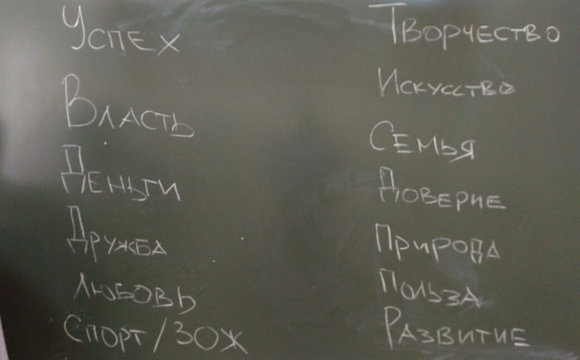 Успех
Власть
Деньги
Дружба
Любовь
Спорт/ЗОЖ
Творчество
Искусство
Семья
Доверие
Природа
Польза
Развитие